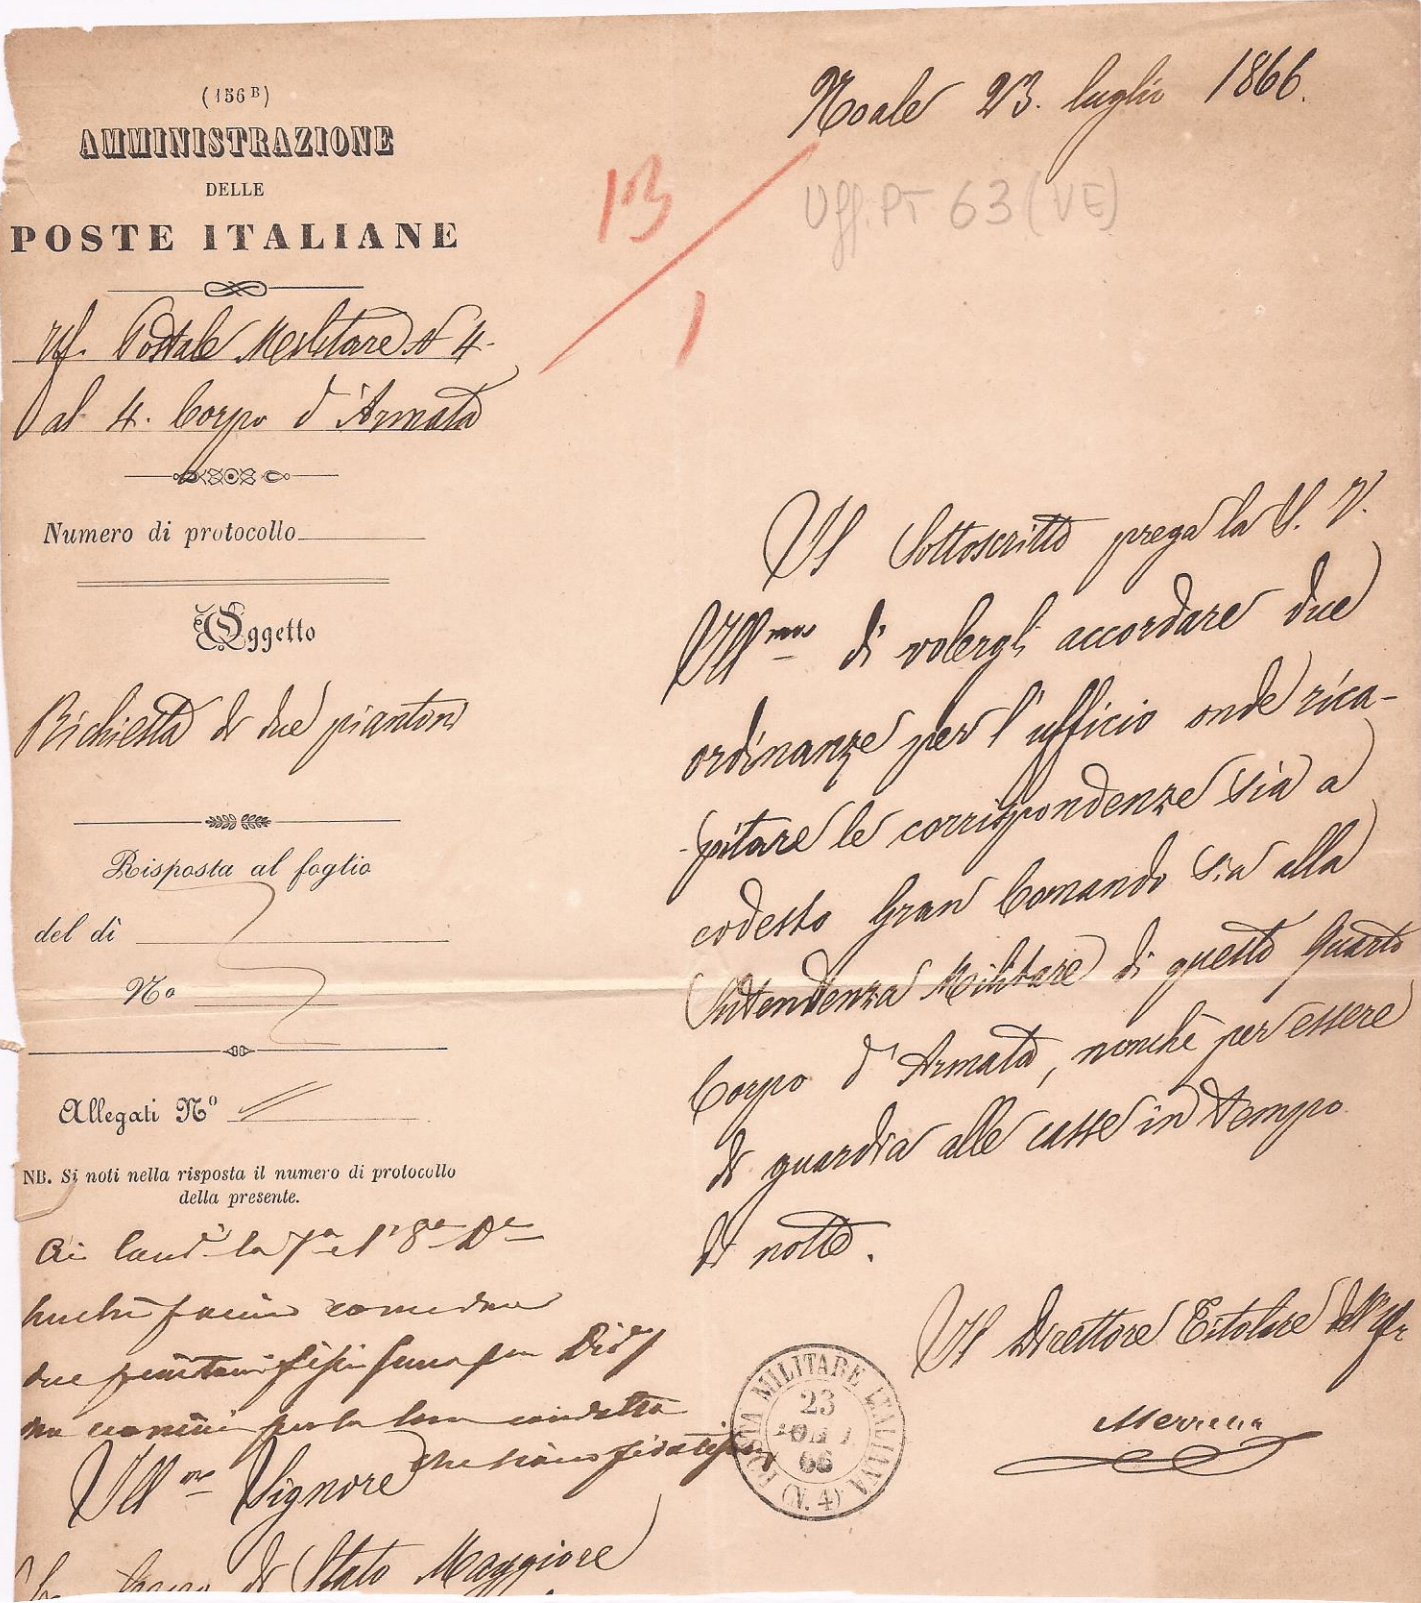 (156 B)
AMMINISTRAZIONE
DELLE
POSTE ITALIANE
Uf. Postale Militare N 4.
al 4. Corpo d'Armata
Numero di protocollo
Oggetto
Richiesta di due piantoni
Risposta al foglio
del dì
No
Allegati No
NB. Si noti nella risposta il numero di protocollo
della presente.
la 7a e l'8a
due piantoni
per la loro condotta
che siano
Illmo Signore
di Stato Maggiore
Noale 23. luglio 1866.
13
1
Uff. PT 63 (VE)
Il Sottoscritto prega la S. V.
Illma di volergli accordare due
ordinanze per l'ufficio onde rica-
-pitare le corrispondenze sia a
codesto Gran Comando sia alla
Intendenza Militare di questo Quarto
Corpo d'Armata, nonchè per essere
di guardia alle casse in tempo
di notte.
Il Direttore Titolare dell'
POSTA MILITARE ITALIANA
23
66
(N. 4)